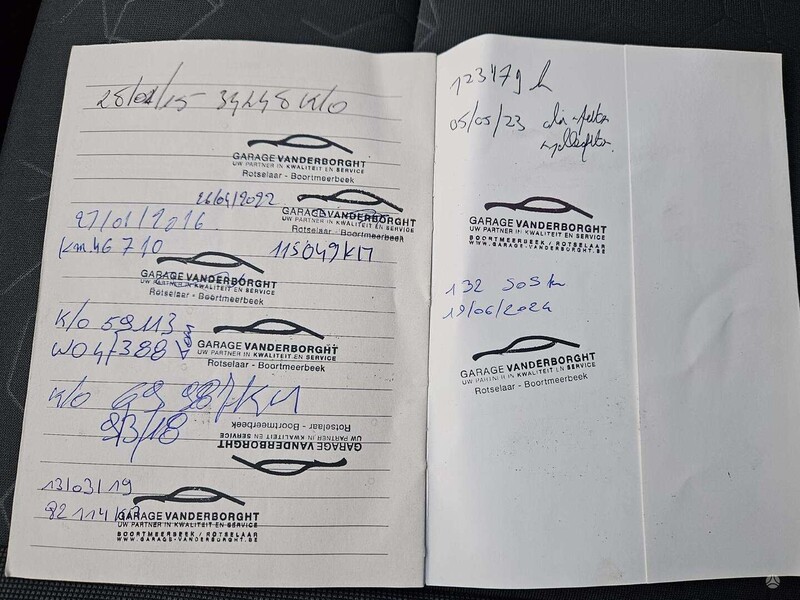 28/01/15 34248 K/O
GARAGE VANDERBORGHT
UW PARTNER IN KWALITEIT EN SERVICE
Rotselaar - Boortmeerbeek
26/04/2022
GARAGE VANDERBORGHT
UW PARTNER IN KWALITEIT EN SERVICE
Rotselaar - Boortmeerbeek
27/01/2016
Km 46 710
115049 KM
GARAGE VANDERBORGHT
UW PARTNER IN KWALITEIT EN SERVICE
Rotselaar - Boortmeerbeek
K/O 59113
GARAGE VANDERBORGHT
UW PARTNER IN KWALITEIT EN SERVICE
Rotselaar - Boortmeerbeek
K/O 69 987 KM
Rotselaar - Boortmeerbeek
UW PARTNER IN KWALITEIT EN SERVICE
GARAGE VANDERBORGHT
13/03/19
82 114 KM
GARAGE VANDERBORGHT
UW PARTNER IN KWALITEIT EN SERVICE
BOORTMEERBEEK / ROTSELAAR
WWW.GARAGE-VANDERBORGHT.BE
123479
05/05/23
GARAGE VANDERBORGHT
UW PARTNER IN KWALITEIT EN SERVICE
BOORTMEERBEEK / ROTSELAAR
WWW.GARAGE-VANDERBORGHT.BE
132 505 km
19/06/2024
GARAGE VANDERBORGHT
UW PARTNER IN KWALITEIT EN SERVICE
Rotselaar - Boortmeerbeek